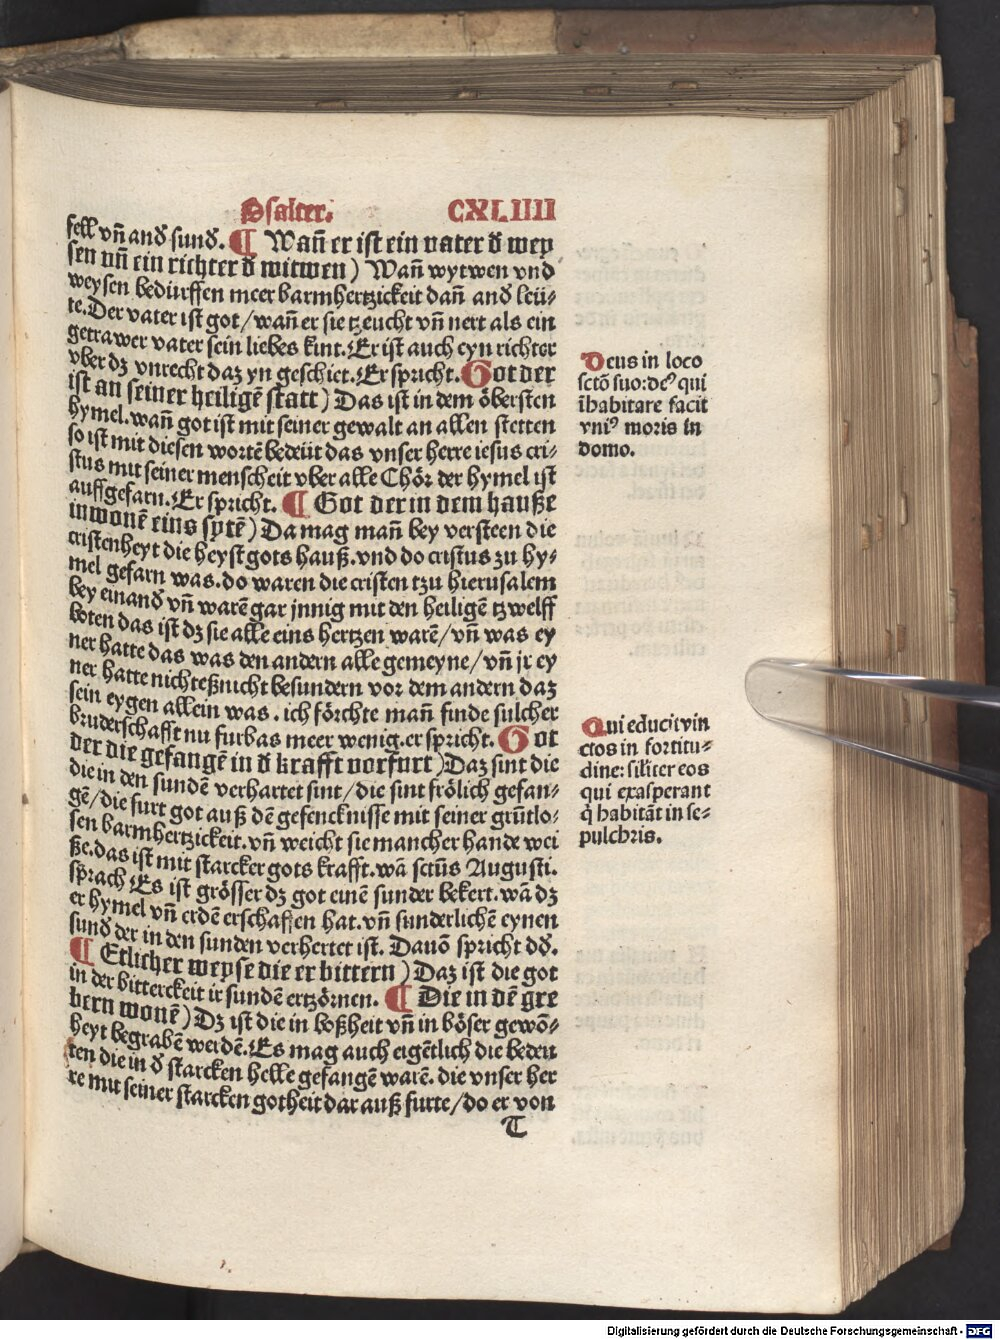 Psalter. CXLIIII
fell vñ and̄ sund̄. ¶ Wañ er ist ein vater d̄ wey
sen vñ ein richter d̄ witwen) Wañ wytwen vnd
weysen bedürffen meer barmhertzickeit dañ and̄ leü⸗
te. Der vater ist got/ wañ er sie tzeucht vñ nert als ein
getrawer vater sein liebes kint. Er ist auch eyn richter
vber dz vnrecht daz yn geschiet. Er spricht. Got der
ist an seiner heiligē statt) Das ist in dem öbersten
hymel. wañ got ist mit seiner gewalt an allen stetten
so ist mit diesen wortē bedeüt das vnser herre iesus cri⸗
stus mit seiner menscheit vber alle Chör der hymel ist
auffgefarn. Er spricht. ¶ Got der in dem hauße
inwonē eins sytē) Da mag mañ bey versteen die
cristenheyt die heyst gots hauß. vnd do cristus zu hy⸗
mel gefarn was. do waren die cristen tzu hierusalem
bey einand̄ vñ warē gar jnnig mit den heiligē tzwelff
boten das ist dz sie alle eins hertzen warē/ vñ was ey
ner hatte das was den andern alle gemeyne/ vñ jr ey
ner hatte nichteßnicht besundern vor dem andern daz
sein eygen allein was. ich förchte mañ finde sulcher
bruderschafft nu furbas meer wenig. er spricht. Got
der die gefangē in d̄ krafft vorfurt) Daz sint die
die in den sundē verhartet sint/ die sint frölich gefan⸗
gē/ die furt got auß dē gefencknisse mit seiner grüntlo⸗
sen barmhertzickeit. vñ weicht sie mancher hande wei
ße. das ist mit starcker gots krafft. wā sctūs Augusti.
sprach Es ist grösser dz got einē sunder bekert. wā dz
er hymel vñ erdē erschaffen hat. vñ sunderlichē eynen
sund̄ der in den sunden verhertet ist. Dauō spricht dd̄.
¶ Etlicher weyse die er bittern) Daz ist die got
in der bitterckeit ir sundē ertzörnen. ¶ Die in dē gre
bern wonē) Dz ist die in boßheit vñ in böser gewō⸗
heyt begrabē werdē. Es mag auch eigētlich die bedeu
ten die in d̄ starcken helle gefangē warē. die vnser her
re mit seiner starcken gotheit dar auß furte/ do er von
T
Deus in loco
sctō suo: deꝰ qui
īhabitare facit
vniꝰ moris in
domo.
Qui educit vin
ctos in fortitu⸗
dine: siliter eos
qui exasperant
q̇ habitāt in se⸗
pulchris.
Digitalisierung gefördert durch die Deutsche Forschungsgemeinschaft - DFG